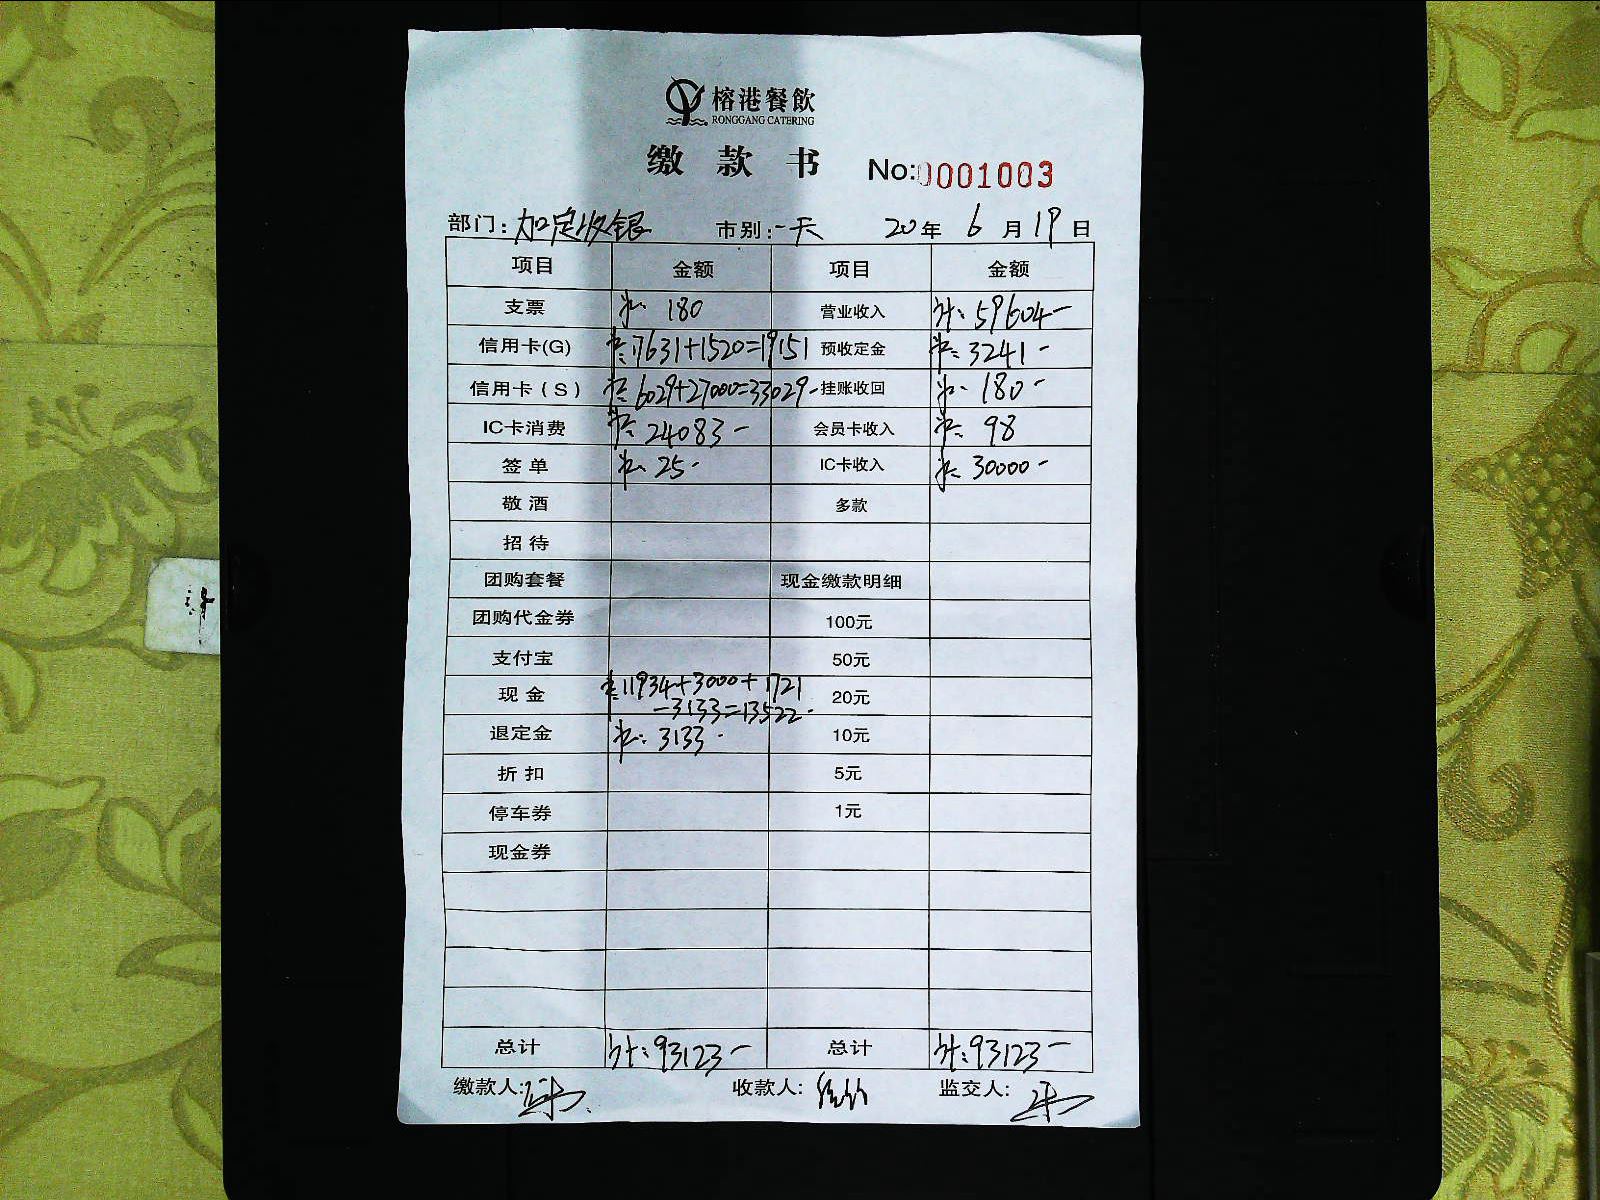 榕港餐飲
RONGGANG CATERING
缴款书 No:0001003
部门: 加定收银 市别: 一天 20年 6月 19日
项目 金额 项目 金额
支票 180 营业收入 计: 59604-
信用卡(G) 17631+1520=19151 预收定金 3241-
信用卡(S) 6029+27000=33029- 挂账收回 180-
IC卡消费 24083- 会员卡收入 98
签单 25- IC卡收入 30000-
敬酒 多款
招待
团购套餐 现金缴款明细
团购代金券 100元
支付宝 50元
现金 11934+3000+1721 20元
-3133=13522-
退定金 3133- 10元
折扣 5元
停车券 1元
现金券
总计 计: 93123- 总计 计: 93123-
缴款人: 收款人: 监交人: